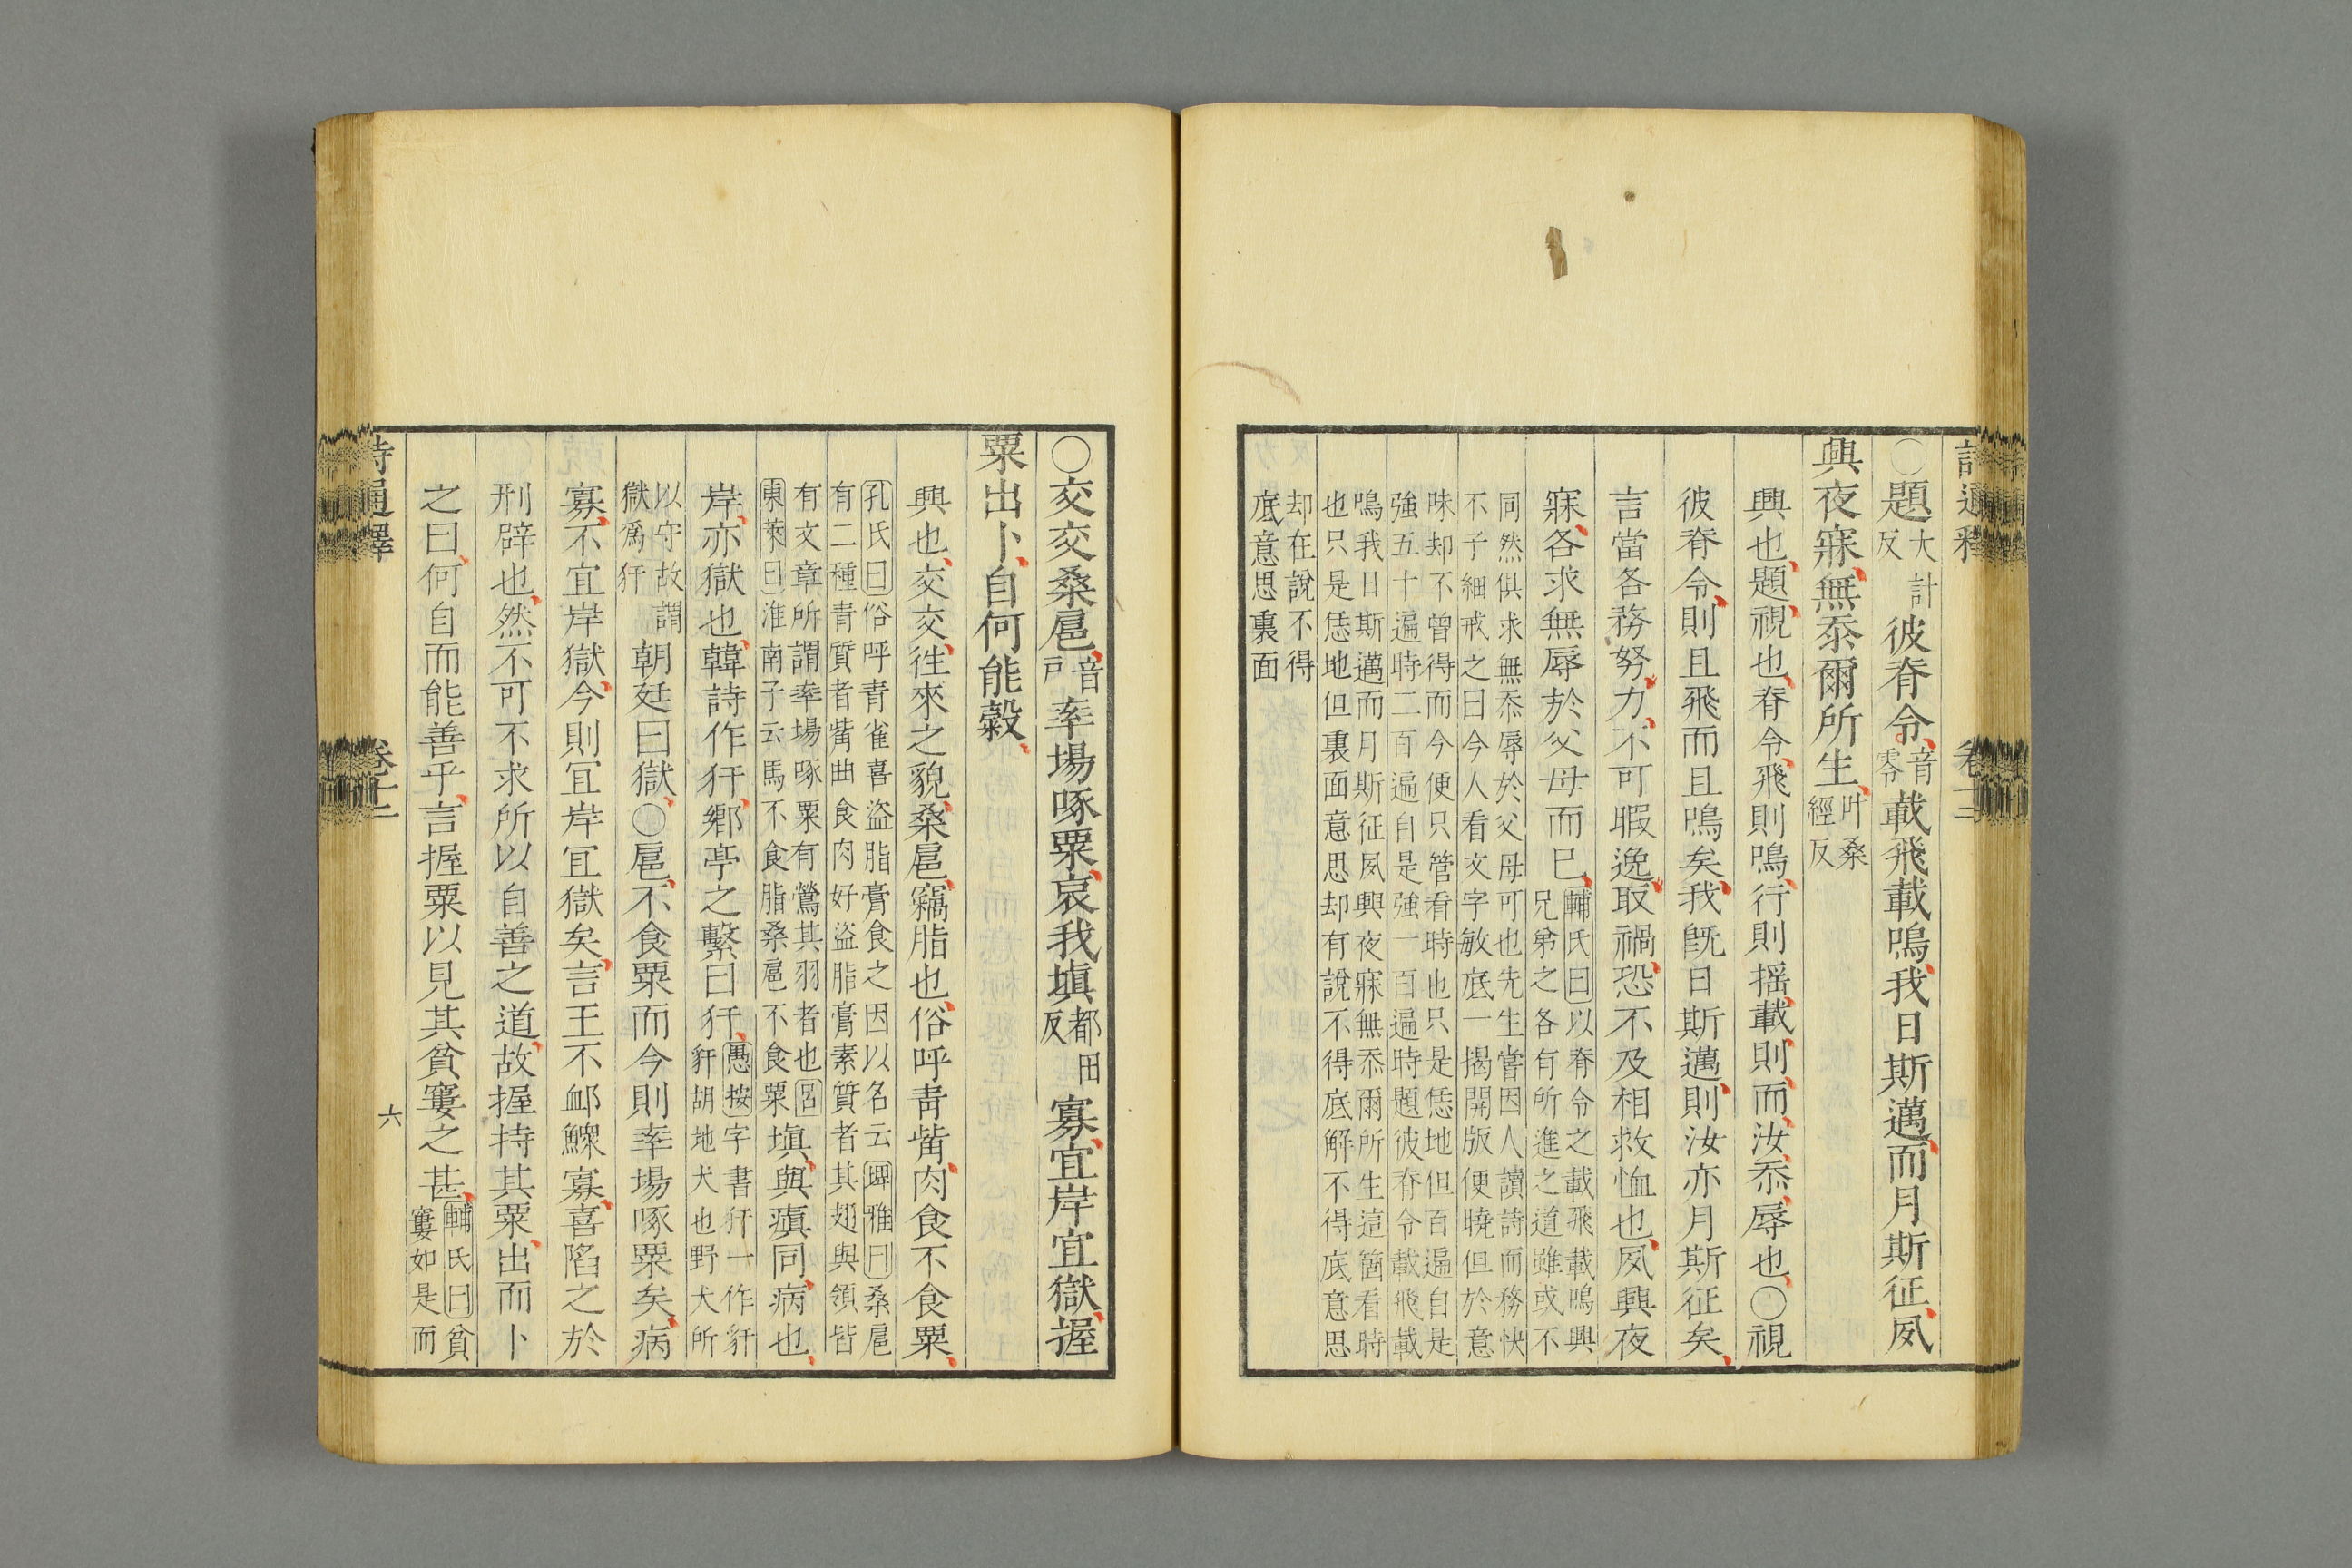 ○題大計反彼脊令音零載飛載鳴我日斯邁而月斯征夙
興夜寐無忝爾所生叶桑經反
興也題視也脊令飛則鳴行則搖載則而汝忝辱也○視
彼脊令則且飛而且鳴矣我旣日斯邁則汝亦月斯征矣
言當各務努力不可暇逸取禍恐不及相救恤也夙興夜
寐各求無辱於父母而已輔氏曰以脊令之載飛載鳴興
兄弟之各有所進之道雖或不
同然俱求無忝辱於父母可也先生嘗因人讀詩而務快
不子細戒之曰今人看文字敏底一揭開版便曉但於意
味却不曾得而今便只管看時也只是恁地但百遍自是
強五十遍時二百遍自是強一百遍時題彼脊令載飛載
鳴我日斯邁而月斯征夙興夜寐無忝爾所生這箇看時
也只是恁地但裏面意思却有說不得底解不得底意思
却在說不得
底意思裏面
○交交桑扈音戶率場啄粟哀我塡都田反寡宜岸宜獄握
粟出卜自何能穀
興也交交徃來之貌桑扈竊脂也俗呼靑觜肉食不食粟
孔氏曰俗呼青雀喜盜脂膏食之因以名云埤雅曰桑扈
有二種青質者觜曲食肉好盜脂膏素質者其翅與領皆
有文章所謂率場啄粟有鶯其羽者也呂
東萊曰淮南子云馬不食脂桑扈不食粟塡與瘨同病也
岸亦獄也韓詩作犴鄉亭之繫曰犴愚按字書犴一作豻
豻胡地犬也野犬所
以守故謂
獄爲犴朝廷曰獄○扈不食粟而今則率場啄粟矣病
寡不宜岸獄今則宜岸宜獄矣言王不卹鰥寡喜陷之於
刑辟也然不可不求所以自善之道故握持其粟出而卜
之曰何自而能善乎言握粟以見其貧窶之甚輔氏曰貧
窶如是而
六